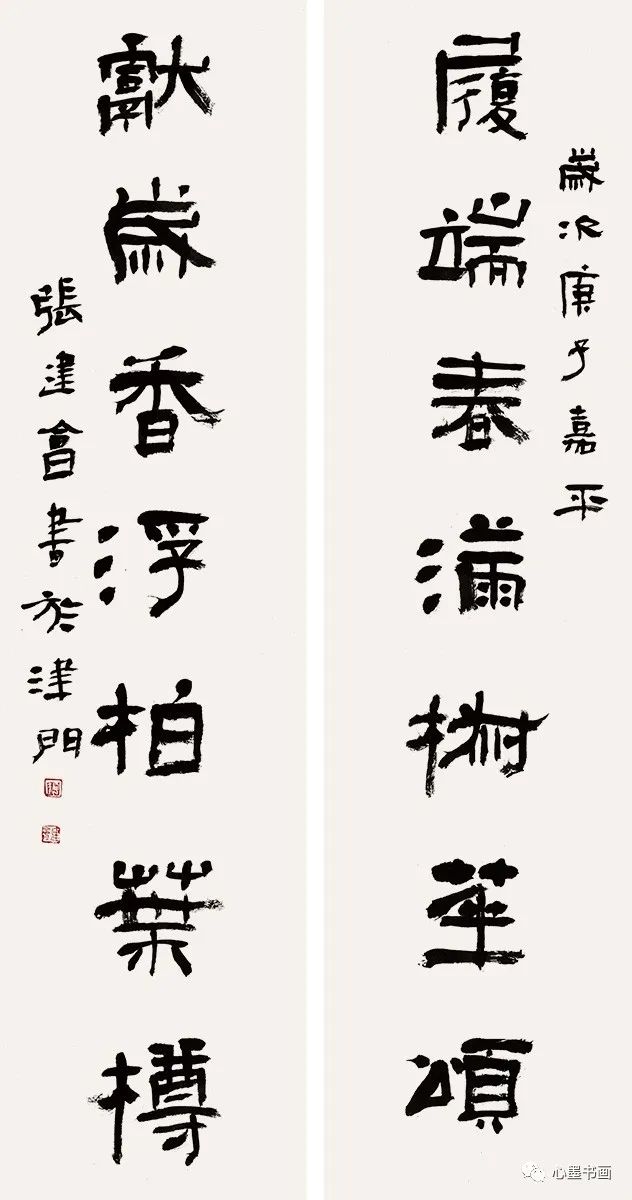 歲次庚子嘉平
履端春滿椒華頌
獻歲香浮柏葉樽
張建會書於津門
心墨书画